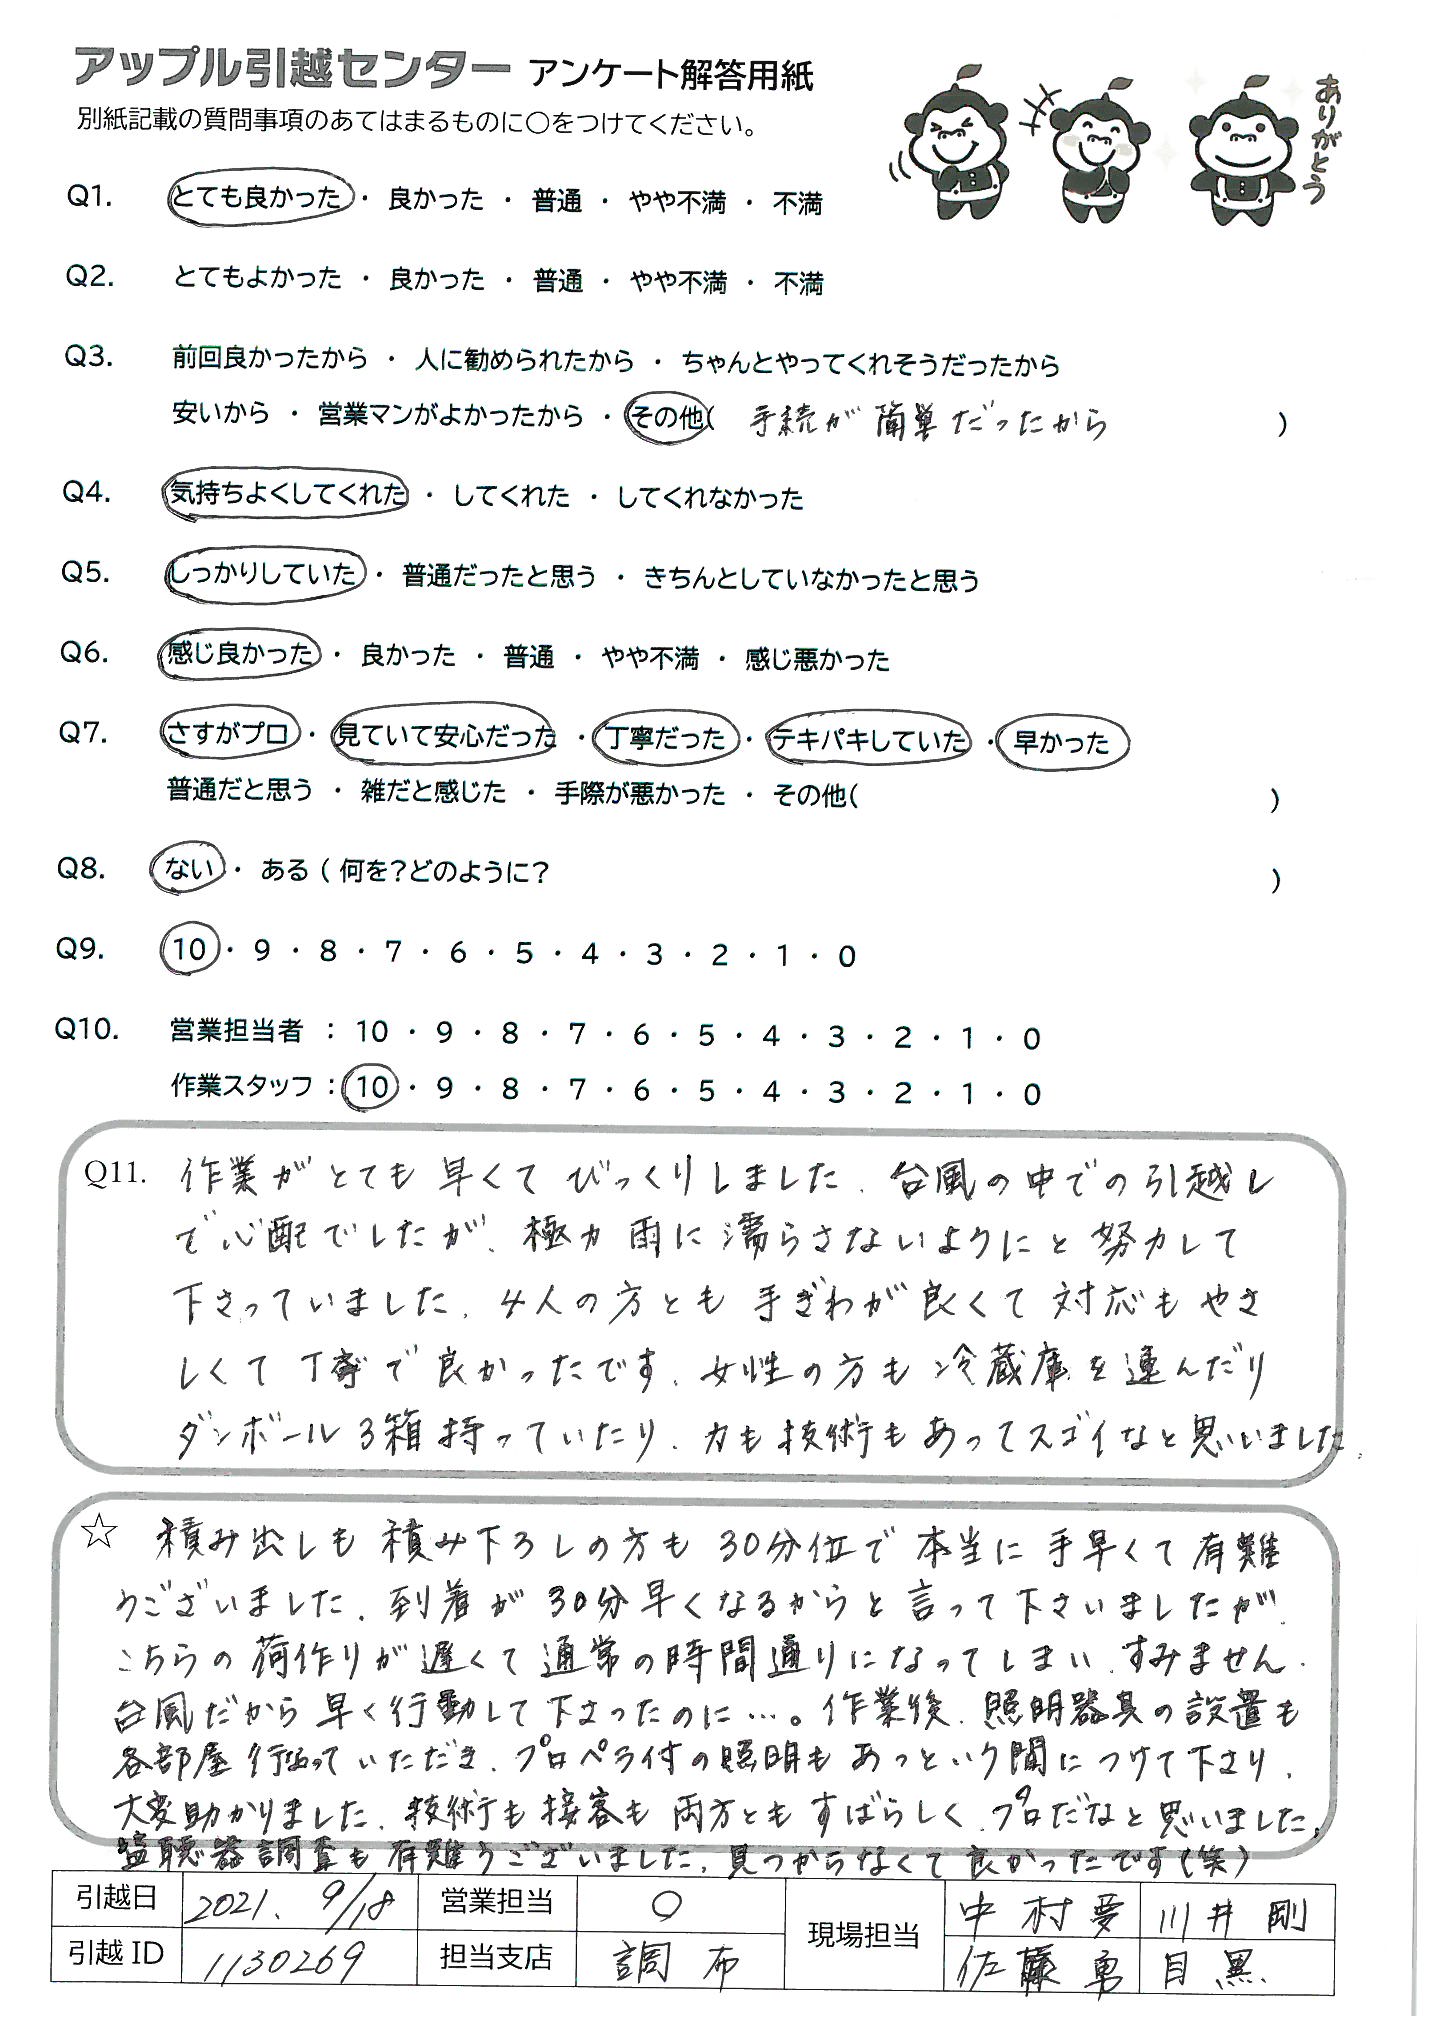 アップル引越センター アンケート解答用紙
別紙記載の質問事項のあてはまるものに○をつけてください。
ありがとう
Q1. とても良かった ・ 良かった ・ 普通 ・ やや不満 ・ 不満
Q2. とてもよかった ・ 良かった ・ 普通 ・ やや不満 ・ 不満
Q3. 前回良かったから ・ 人に勧められたから ・ ちゃんとやってくれそうだったから
安いから ・ 営業マンがよかったから ・ その他( 手続が簡単だったから )
Q4. 気持ちよくしてくれた ・ してくれた ・ してくれなかった
Q5. しっかりしていた ・ 普通だったと思う ・ きちんとしていなかったと思う
Q6. 感じ良かった ・ 良かった ・ 普通 ・ やや不満 ・ 感じ悪かった
Q7. さすがプロ ・ 見ていて安心だった ・ 丁寧だった ・ テキパキしていた ・ 早かった
普通だと思う ・ 雑だと感じた ・ 手際が悪かった ・ その他( )
Q8. ない ・ ある ( 何を?どのように? )
Q9. 10 ・ 9 ・ 8 ・ 7 ・ 6 ・ 5 ・ 4 ・ 3 ・ 2 ・ 1 ・ 0
Q10. 営業担当者 : 10 ・ 9 ・ 8 ・ 7 ・ 6 ・ 5 ・ 4 ・ 3 ・ 2 ・ 1 ・ 0
作業スタッフ : 10 ・ 9 ・ 8 ・ 7 ・ 6 ・ 5 ・ 4 ・ 3 ・ 2 ・ 1 ・ 0
Q11. 作業がとても早くてびっくりしました、台風の中での引越し
で心配でしたが、極力雨に濡らさないようにと努力して
下さっていました、4人の方とも手ぎわが良くて対応もやさ
しくて丁寧で良かったです、女性の方も冷蔵庫を運んだり
ダンボール3箱持っていたり、力も技術もあってスゴイなと思いました、
☆ 積み出しも積み下ろしの方も30分位で本当に手早くて有難
うございました、到着が30分早くなるからと言って下さいましたが、
こちらの荷作りが遅くて通常の時間通りになってしまい、すみません、
台風だから早く行動して下さったのに…。作業後、照明器具の設置も
各部屋行なっていただき、プロペラ付の照明もあっという間につけて下さり、
大変助かりました、技術も接客も両方ともすばらしく、プロだなと思いました、
盗聴器調査も有難うございました、見つからなくて良かったです(笑)
引越日 2021. 9/18 営業担当 ○ 現場担当 中村夢 川井剛
引越ID 1130269 担当支店 調布 佐藤勇 目黒